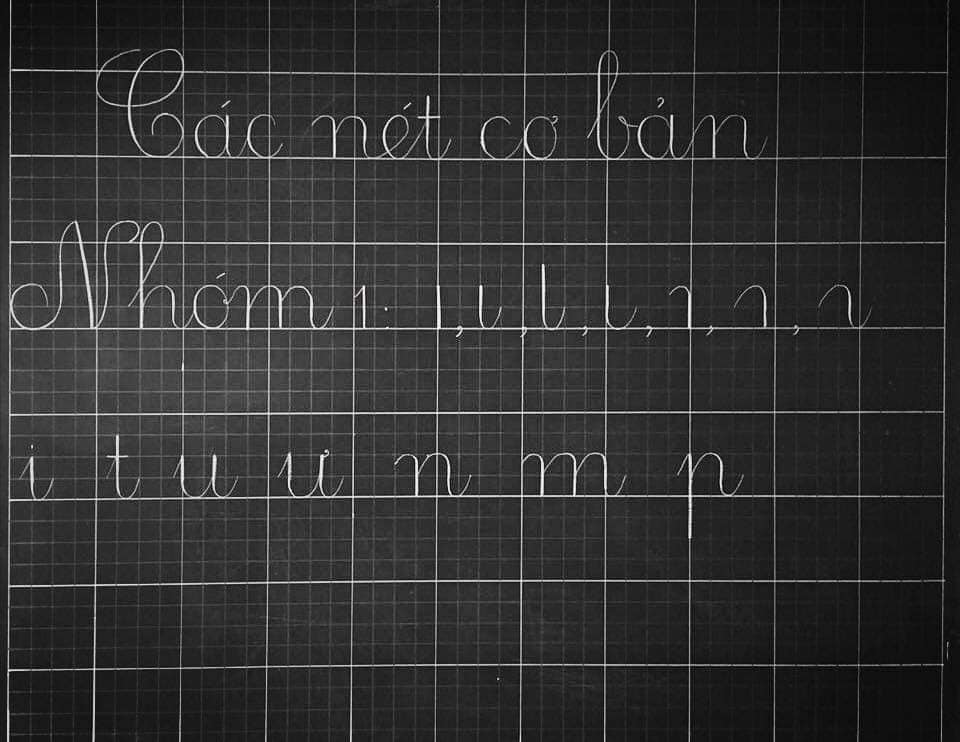 Các nét cơ bản
Nhóm 1: ı, ɩ, l, ɩ, ı, ı, ı
i t u ư n m p